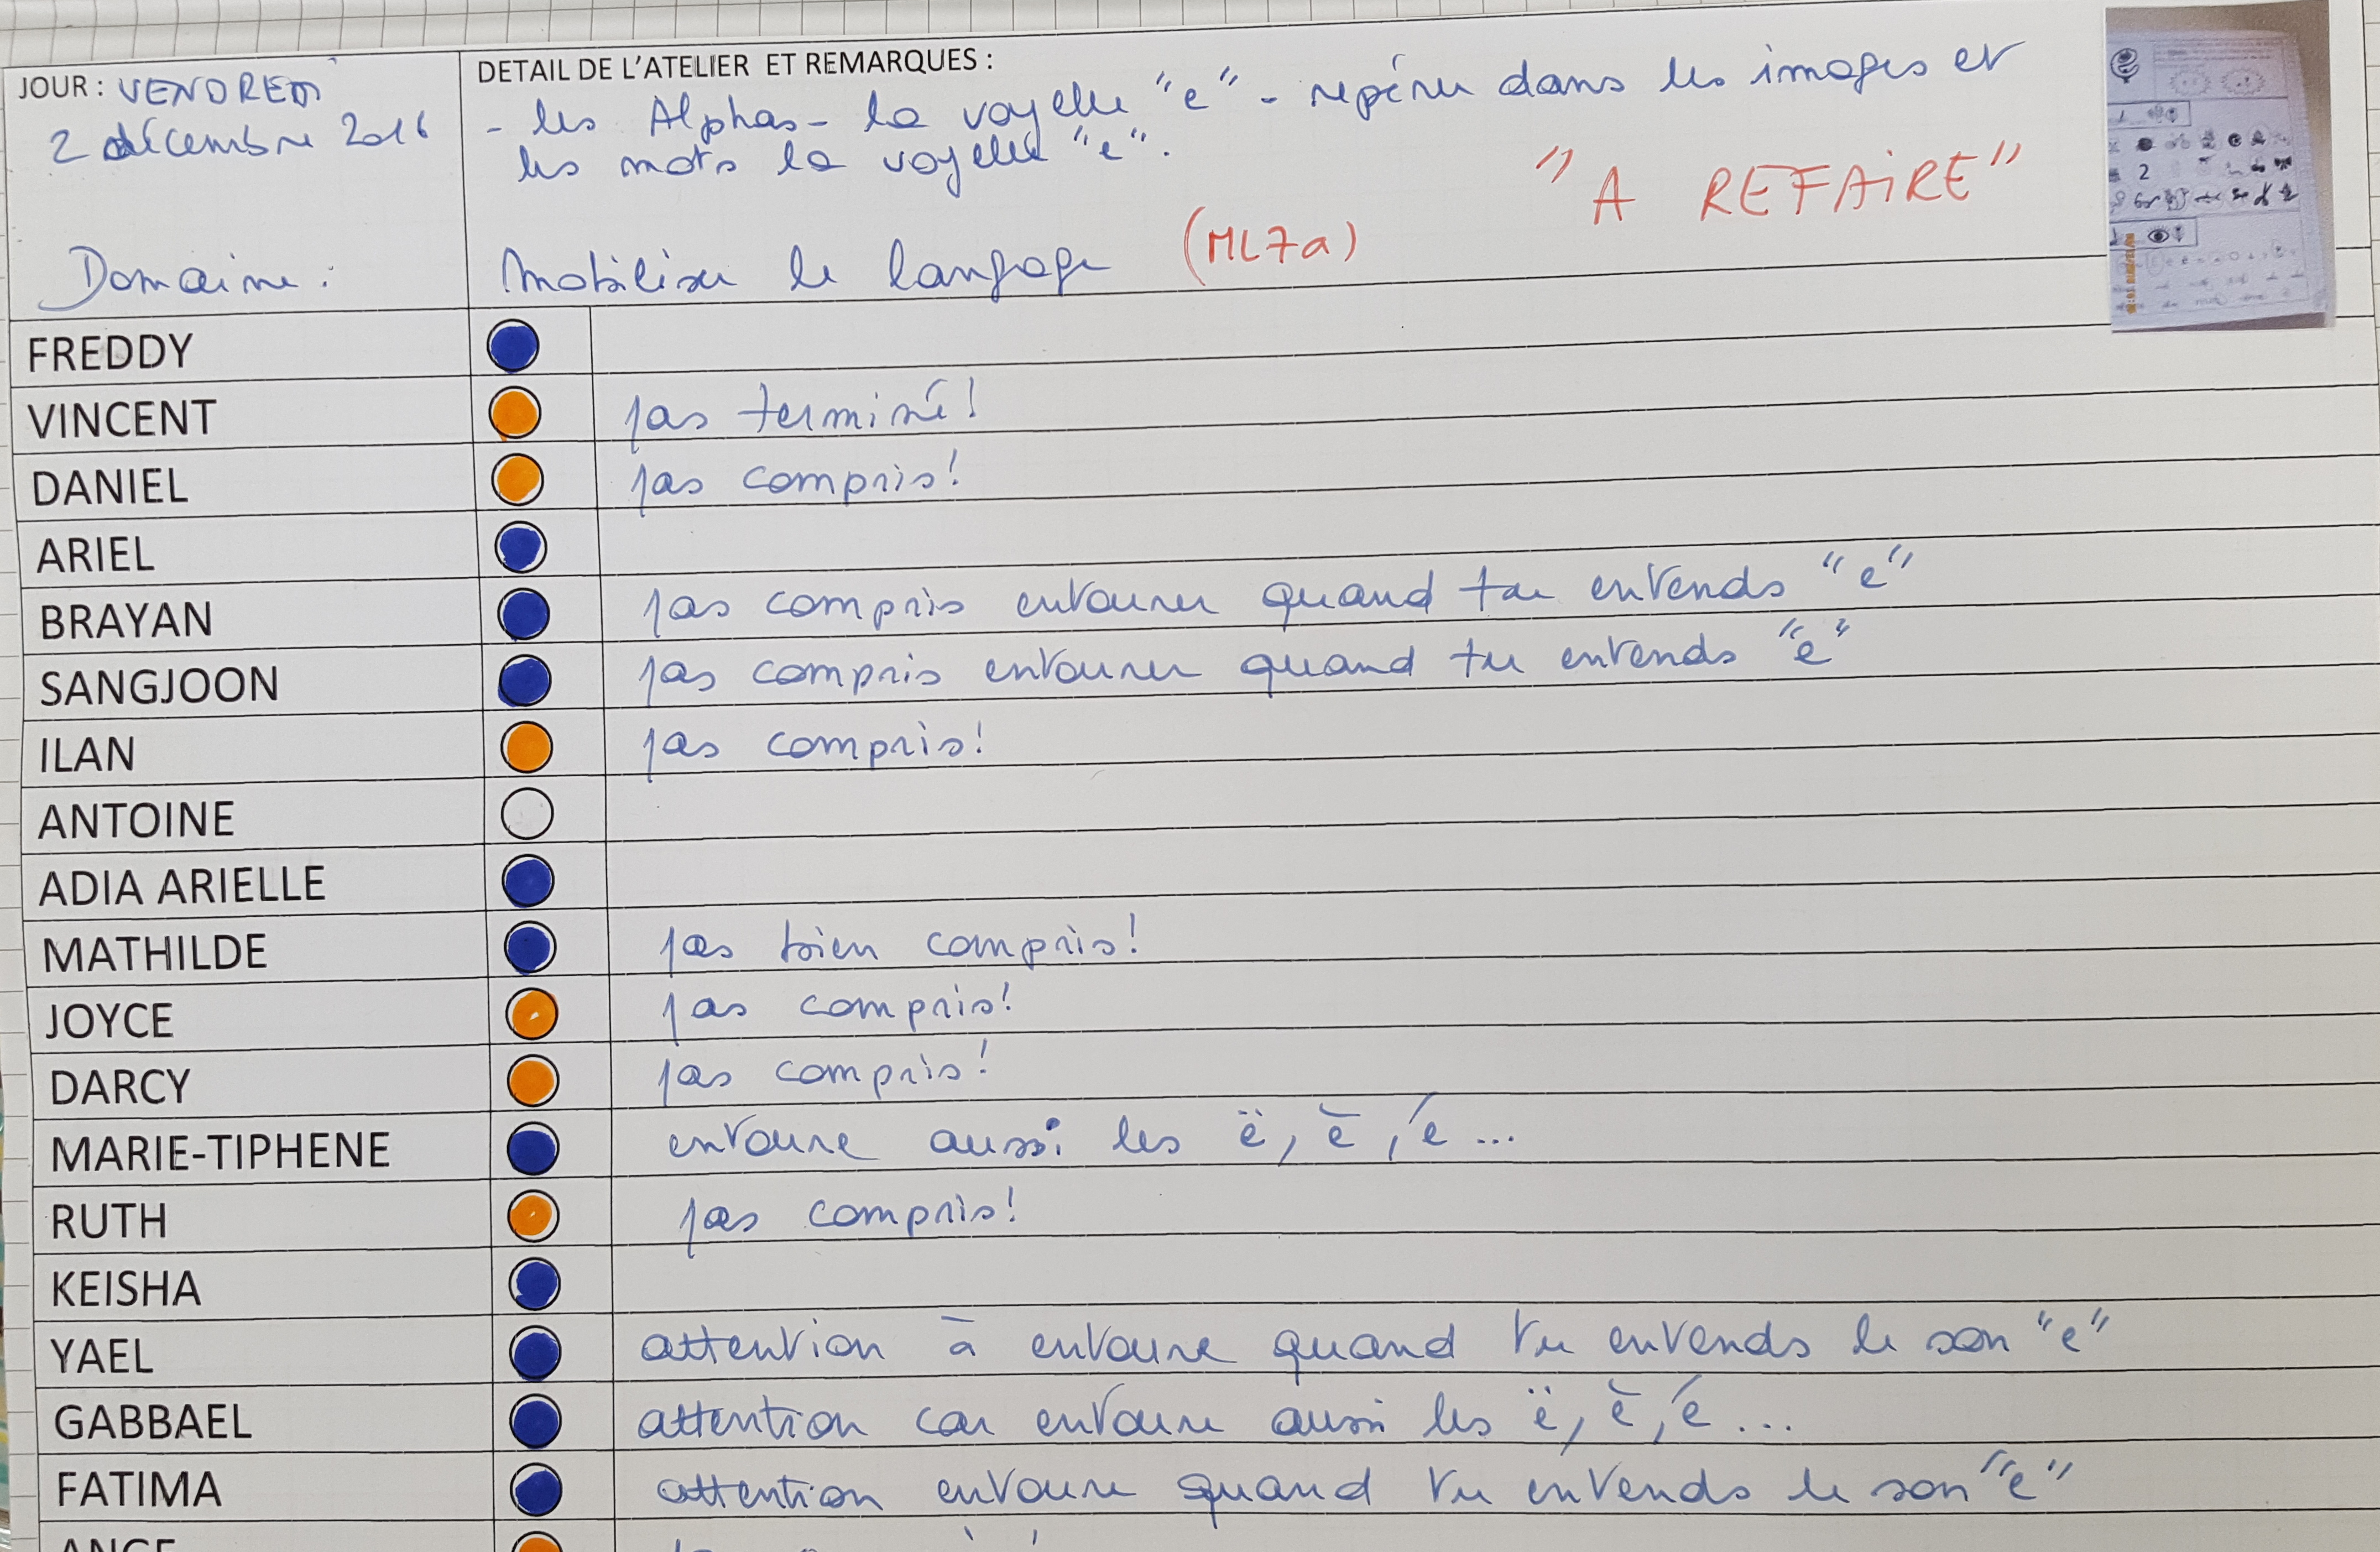 JOUR : VENDREDI
2 décembre 2016
DETAIL DE L'ATELIER ET REMARQUES :
- les Alphas - la voyelle "e" - repérer dans les images et
les mots la voyelle "e".
"A REFAIRE"
Domaine :
Mobiliser le langage (ML7a)
FREDDY
VINCENT pas terminé !
DANIEL pas compris !
ARIEL
BRAYAN pas compris entourer quand tu entends "e"
SANGJOON pas compris entourer quand tu entends "e"
ILAN pas compris !
ANTOINE
ADIA ARIELLE
MATHILDE pas bien compris !
JOYCE pas compris !
DARCY pas compris !
MARIE-TIPHENE entoure aussi les ë, è, é ...
RUTH pas compris !
KEISHA
YAEL attention à entoure quand tu entends le son "e"
GABBAEL attention car entoure aussi les ë, è, é ...
FATIMA attention entoure quand tu entends le son "e"
ANGE